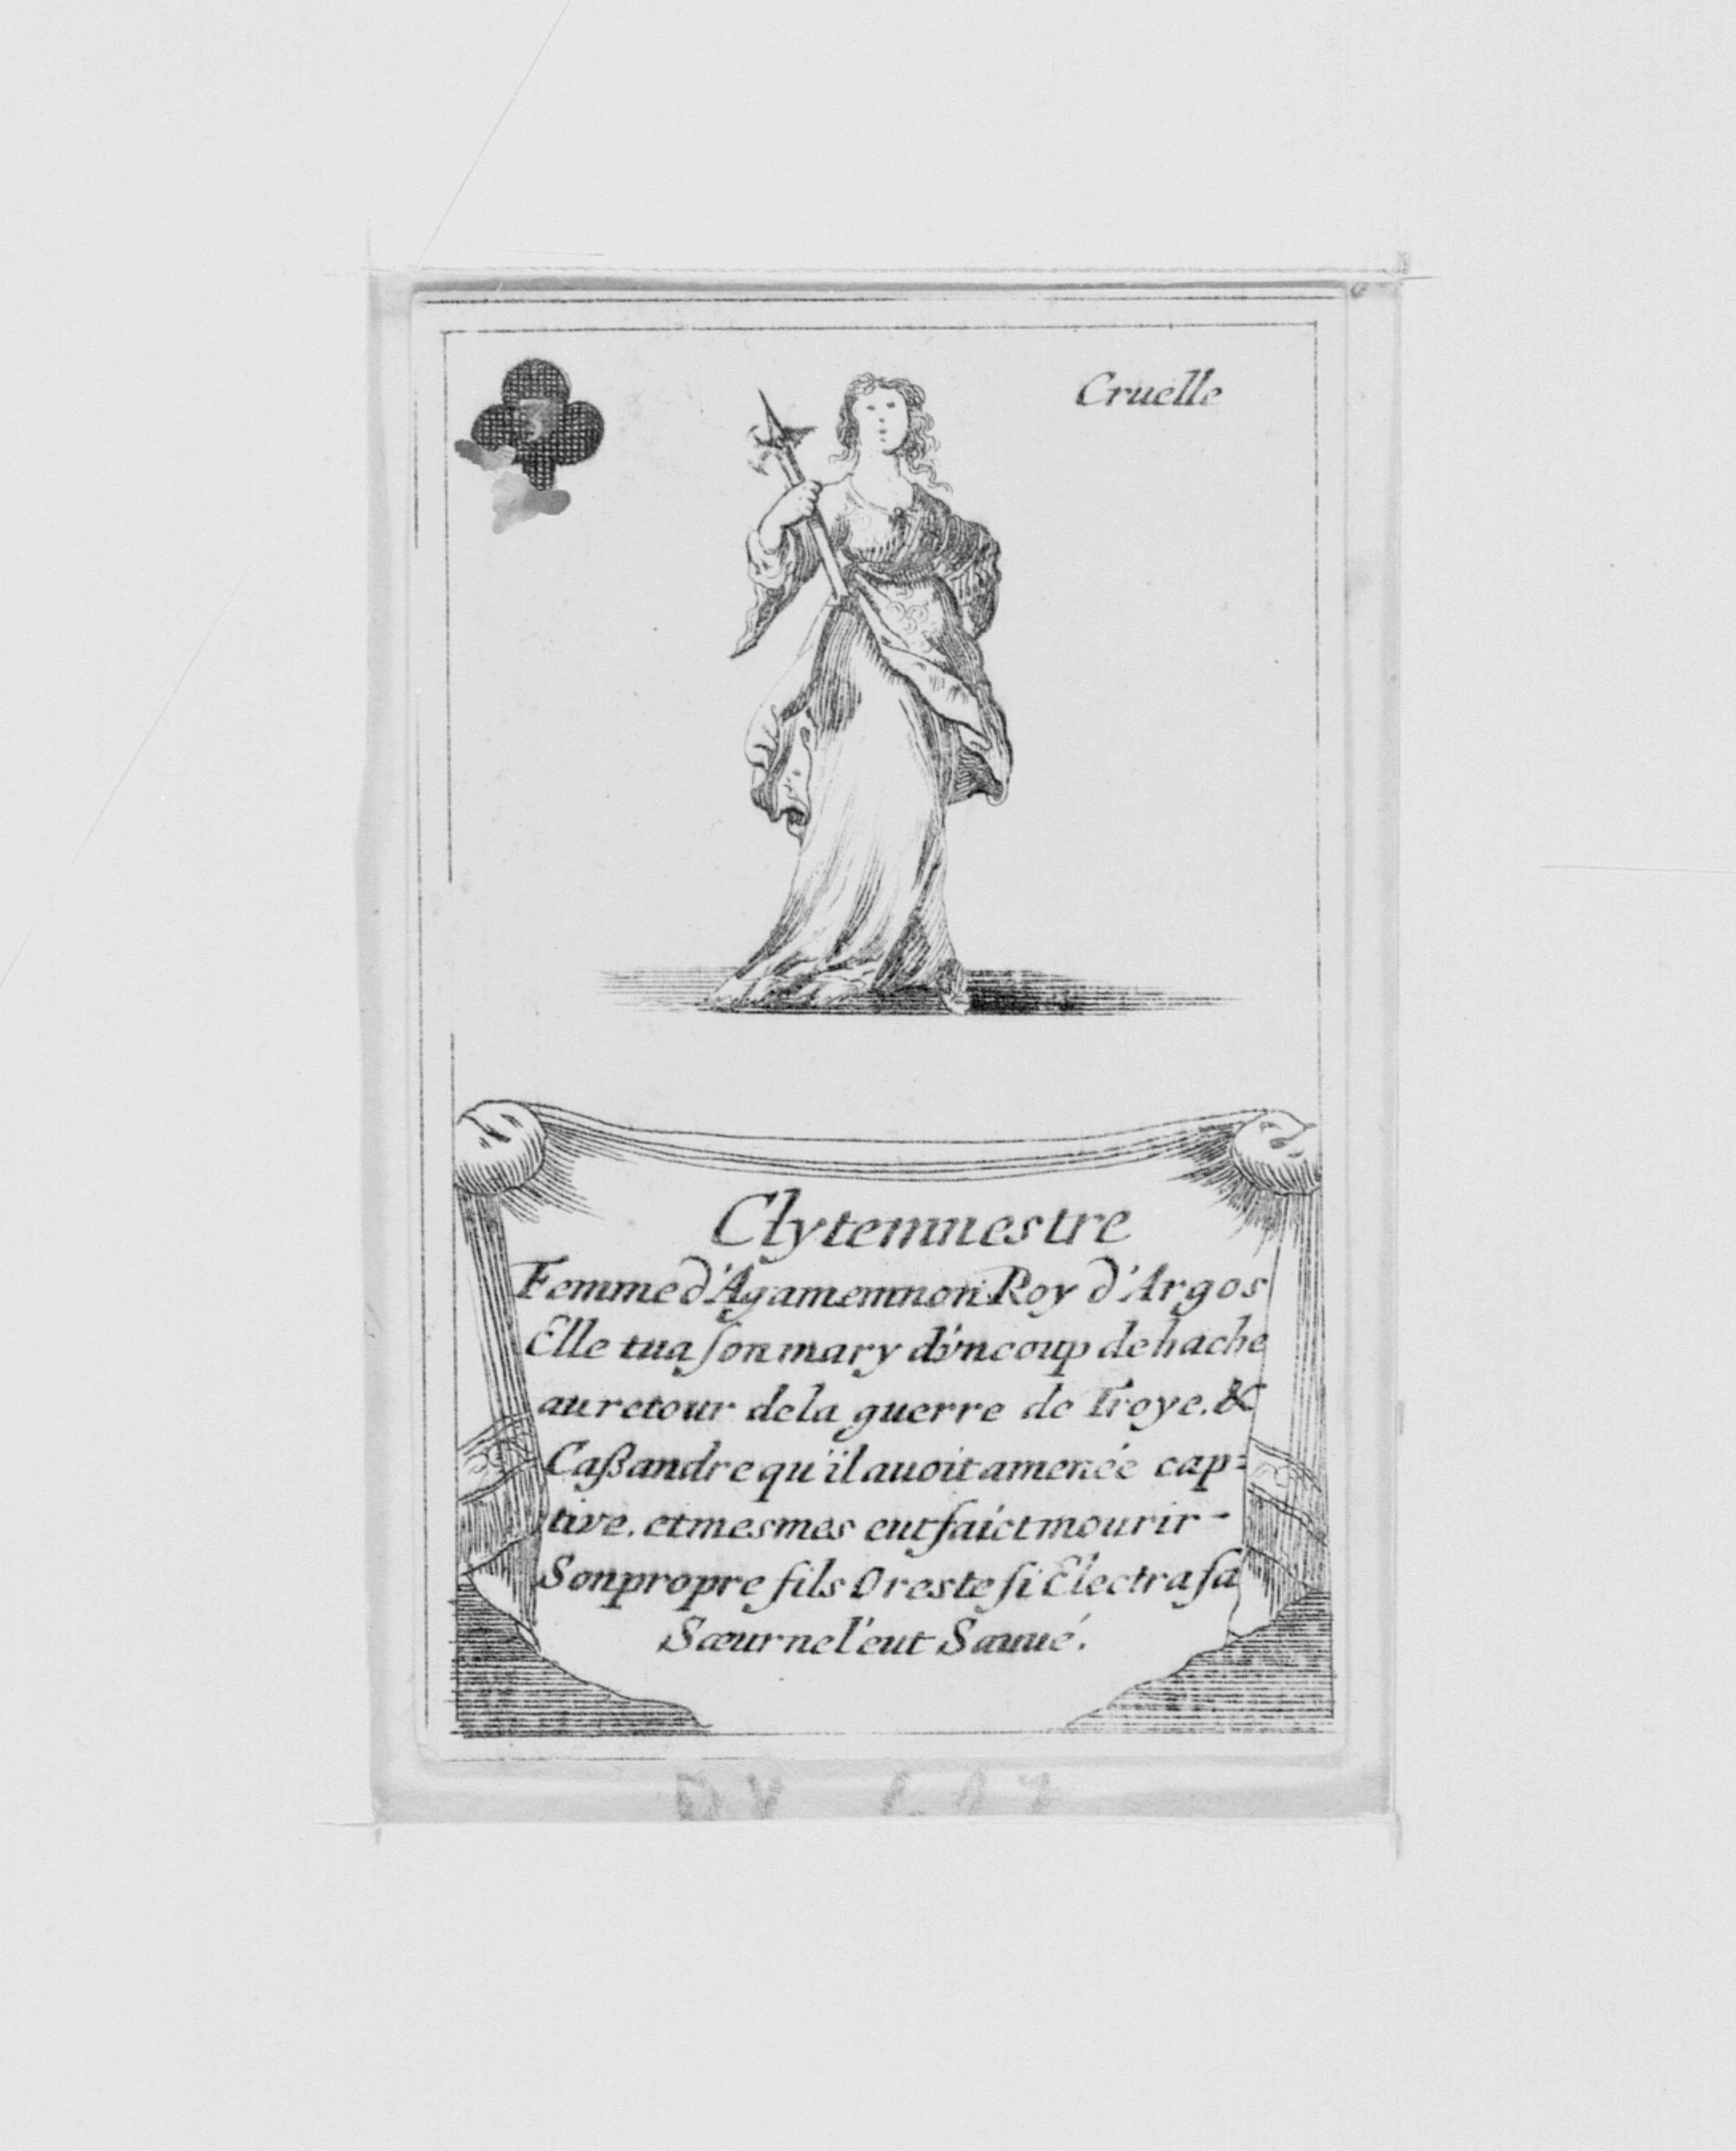 3
Cruelle
Clytemnestre
Femme d'Agamemnon Roy d'Argos
Elle tua ſon mary d'vn coup de hache
au retour de la guerre de Troye. &
Caßandre qu'il auoit amenée cap=
tive. et mesmes eut faict mourir -
Son propre fils Oreste ſi Electra ſa
Sœur ne l'eut Sauué.